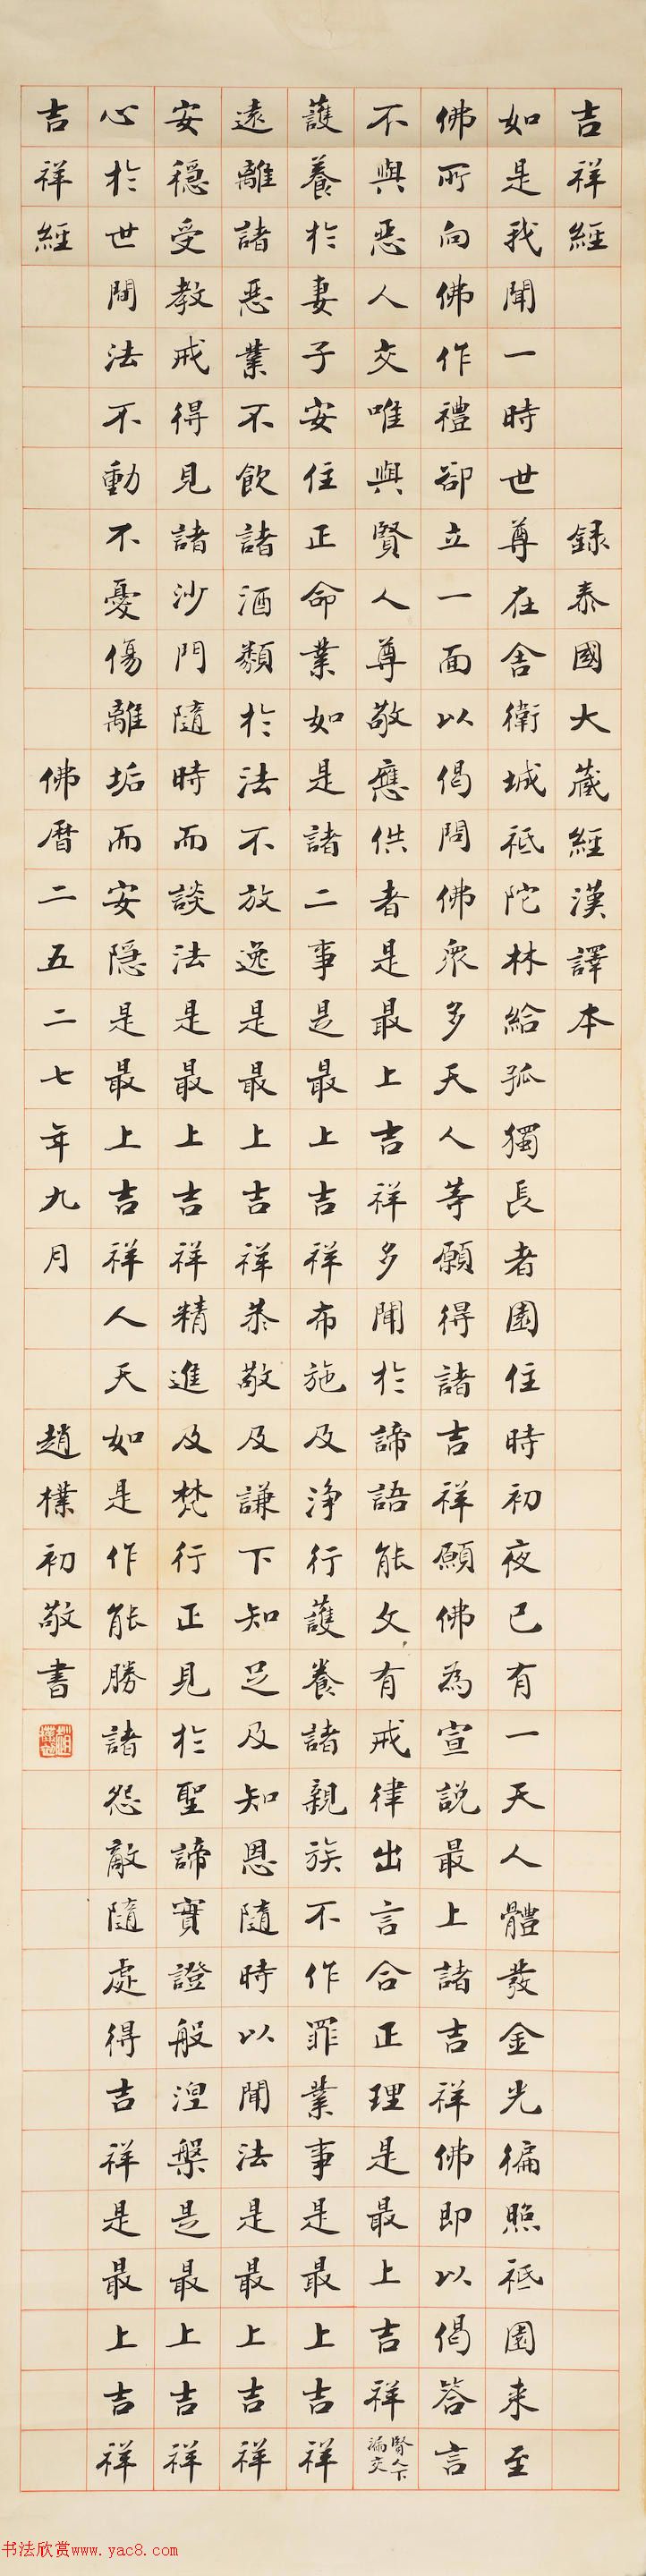 吉祥經 録泰國大藏經漢譯本
如是我聞一時世尊在舍衛城祗陀林給孤獨長者園住時初夜已有一天人體發金光徧照祗園来至
佛所向佛作禮卻立一面以偈問佛衆多天人等願得諸吉祥願佛為宣説最上諸吉祥佛即以偈答言
不與惡人交唯與賢人尊敬應供者是最上吉祥多聞於諦語能文有戒律出言合正理是最上吉祥 賢人下漏交
護養於妻子安住正命業如是諸二事是最上吉祥布施及淨行護養諸親族不作罪業事是最上吉祥
遠離諸惡業不飲諸酒類於法不放逸是最上吉祥恭敬及謙下知足及知恩隨時以聞法是最上吉祥
安穩受教戒得見諸沙門隨時而談法是最上吉祥精進及梵行正見於聖諦實證般湼槃是最上吉祥
心於世間法不動不憂傷離垢而安隱是最上吉祥人天如是作能勝諸怨敵隨處得吉祥是最上吉祥
吉祥經 佛曆二五二七年九月 趙樸初敬書
趙樸初
书法欣赏www.yac8.com